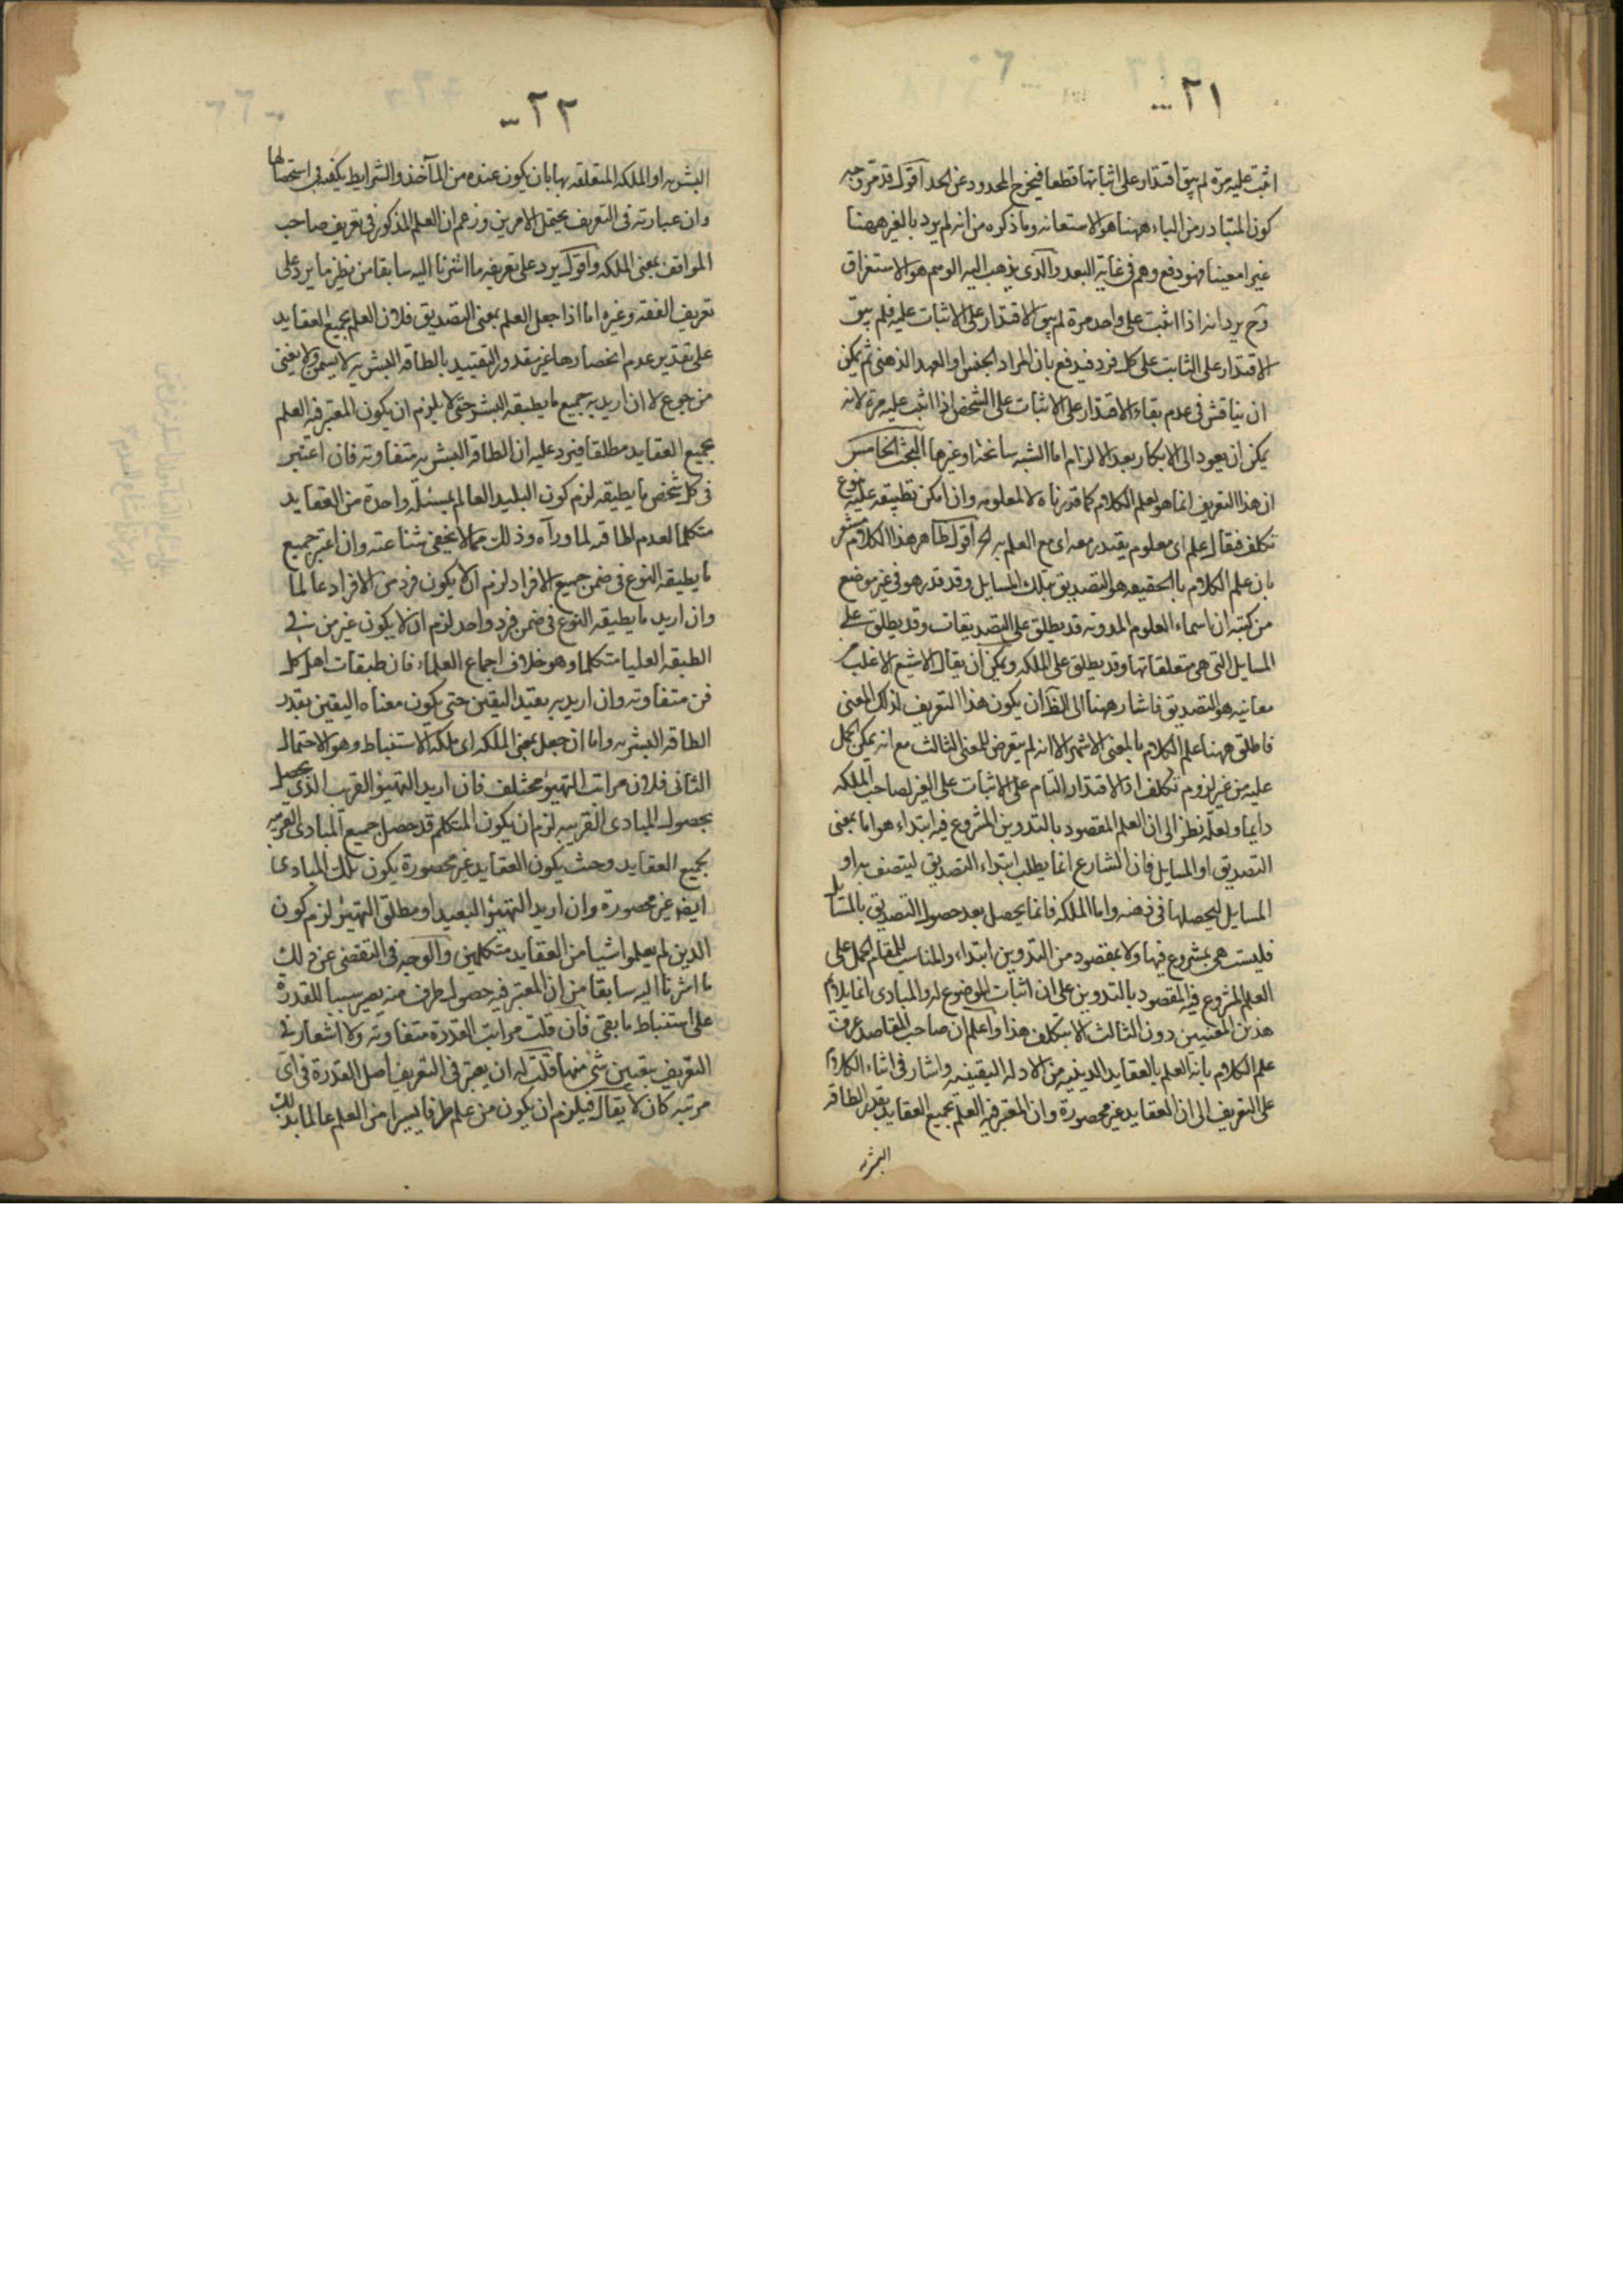 ٢١
اثبت عليه مرة لم يبق اقتدار على اثباتها قطعا فيخرج المحدود عن الحد اقول قد مر وجه
كون المتبادر من الباء ههنا هو الاستعانه وما ذكره من انه لم يرد بالغير ههنا
غيرا معينا فهو دفع وهم فى غاية البعد والذى يذهب اليه الوهم هو الاستغراق
وح يرد انه اذا اثبت على واحد مرة لم يبق الاقتدار على الاثبات عليه فلم يبق
الاقتدار على الثابت على كل فرد فيدفع بان المراد الجنس او العهد الذهنى ثم يمكن
ان يناقش فى عدم بقاء الاقتدار على الاثبات على الشخص اذا اثبت عليه مرة لانه
يمكن ان يعود الى الانكار بعد الالزام اما الشبه سانحة او غيرها البحث الخامس
ان هذا التعريف انما هو لعلم الكلام كما قررناه لا لمعلومه وان امكن تطبيقه عليه بنوع
تكلف فيقال علم اى معلوم يقتدر معه اى مع العلم به الخ اقول ظاهر هذا الكلام مشعر
بان علم الكلام بالحقيقه هو التصديق بتلك المسايل وقد قدر هو فى غير موضع
من كتبه ان اسماء العلوم المدونه قد يطلق على التصديقات وقد يطلق على
المسايل التى هى متعلقاتها وقد يطلق على الملكه ويمكن ان يقال الاشيع الاغلب من
معانيه هو التصديق فاشار ههنا الى الظ ان يكون هذا التعريف لذلك المعنى
فاطلق ههنا علم الكلام بالمعنى الاشهر الا انه لم يتعرض للمعنى الثالث مع انه يمكن الحمل
عليه من غير لزوم تكلف اذ الاقتدار التام على الاثبات على الغير لصاحب الملكه
دايما ولعله نظر الى ان العلم المقصود بالتدوين المشروع فيه ابتداء هو اما بمعنى
التصديق او المسايل فان الشارع انما يطلب ابتداء التصديق ليتصف به او
المسايل ليحصلها فى ذهنه واما الملكه فانما يحصل بعد حصول التصديق بالمسايل
فليست هى بمشروع فيها ولا بمقصود من التدوين ابتداء والمناسب للمقام الحمل على
العلم المشروع فيه المقصود بالتدوين على ان اثبات الموضوع له والمبادى انما يلايم
هذين المعنيين دون الثالث الا بتكلف هذا واعلم ان صاحب المقاصد عرف
علم الكلام بانه العلم بالعقايد الدينيه من الادله اليقينيه واشار فى اثناء الكلام
على التعريف الى ان العقايد غير محصورة وان المعتبر فيه العلم بجميع العقايد بقدر الطاقه
البشريه
٢٢
البشريه او الملكه المتعلقه بها بان يكون عنده من المآخذ والشرايط يكفيه فى استحصالها
وان عبارته فى التعريف يحتمل الامرين وزعم ان العلم المذكور فى تعريف صاحب
المواقف بمعنى الملكه واقول يرد على تعريفه ما اشرنا اليه سابقا من نظير ما يرد على
تعريف الفقه وغيره اما اذا جعل العلم بمعنى التصديق فلان العلم بجميع العقايد
على تقدير عدم انحصارها غير مقدور والتقييد بالطاقه البشريه لا يسمن ولا يغنى
من جوع لا ان اريد به جميع ما يطيقه البشر حتى لا يلزم ان يكون المعتبر فيه العلم
بجميع العقايد مطلقا فيرد عليه ان الطاقه البشريه متفاوته فان اعتبر
فى كل شخص ما يطيقه لزم كون البليد العالم بمسئلة واحدة من العقايد
متكلما لعدم اطاقه لما ورآه وذلك مما لا يخفى شناعته وان اعتبر جميع
ما يطيقه النوع فى ضمن جميع الافراد لزم ان لا يكون فرد من الافراد عالما
وان اريد ما يطيقه النوع فى ضمن فرد واحد لزم ان لا يكون غير من فى
الطبقه العليا متكلما وهو خلاف اجماع العلماء فان طبقات اهل كل
فن متفاوته وان اريد به بقيد اليقين حتى يكون معناه اليقين بقدر
الطاقه البشريه واما ان جعل بمعنى الملكه اى ملكة الاستنباط وهو الاحتمال
الثانى فلان مراتب التهيؤ مختلف فان اريد التهيؤ القرب الذى يحصل
بحصول المبادى القريبه لزم ان يكون المتكلم قد حصل جميع المبادى القريبه
بجميع العقايد وحيث يكون العقايد غير محصورة يكون تلك المبادى
ايضا غير محصورة وان اريد التهيؤ البعيد او مطلق التهيؤ لزم كون
الذين لم يعلموا شيا من العقايد متكلمين والوجه فى التفصى عن ذلك
ما اشرنا اليه سابقا من ان المعتبر فيه حصول طرف منه يصير سببا للقدرة
على استنباط ما بقى فان قلت مراتب القدرة متفاوته ولا اشعار فى
التعريف بتعيين شئ منها قلت له ان يعتبر فى التعريف اصل القدرة فى اى
مرتبه كان لا يقال فيلزم ان يكون من علم طرفا يسيرا من العلم عالما بذلك